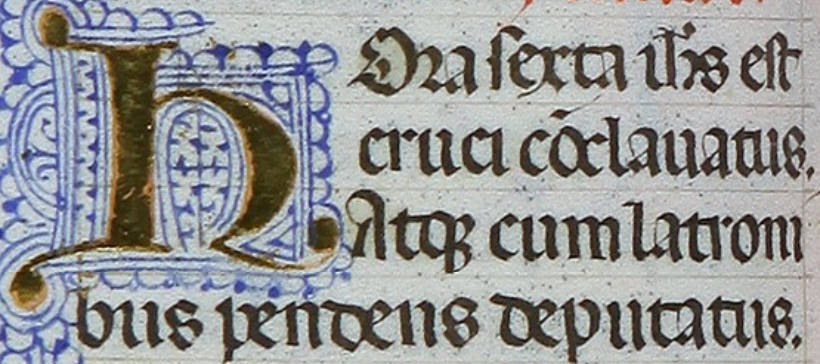 HOra sexta ih̄s est
cruci cōclauatus.
Atqꝫ cum latroni
bus pendens deputatus.